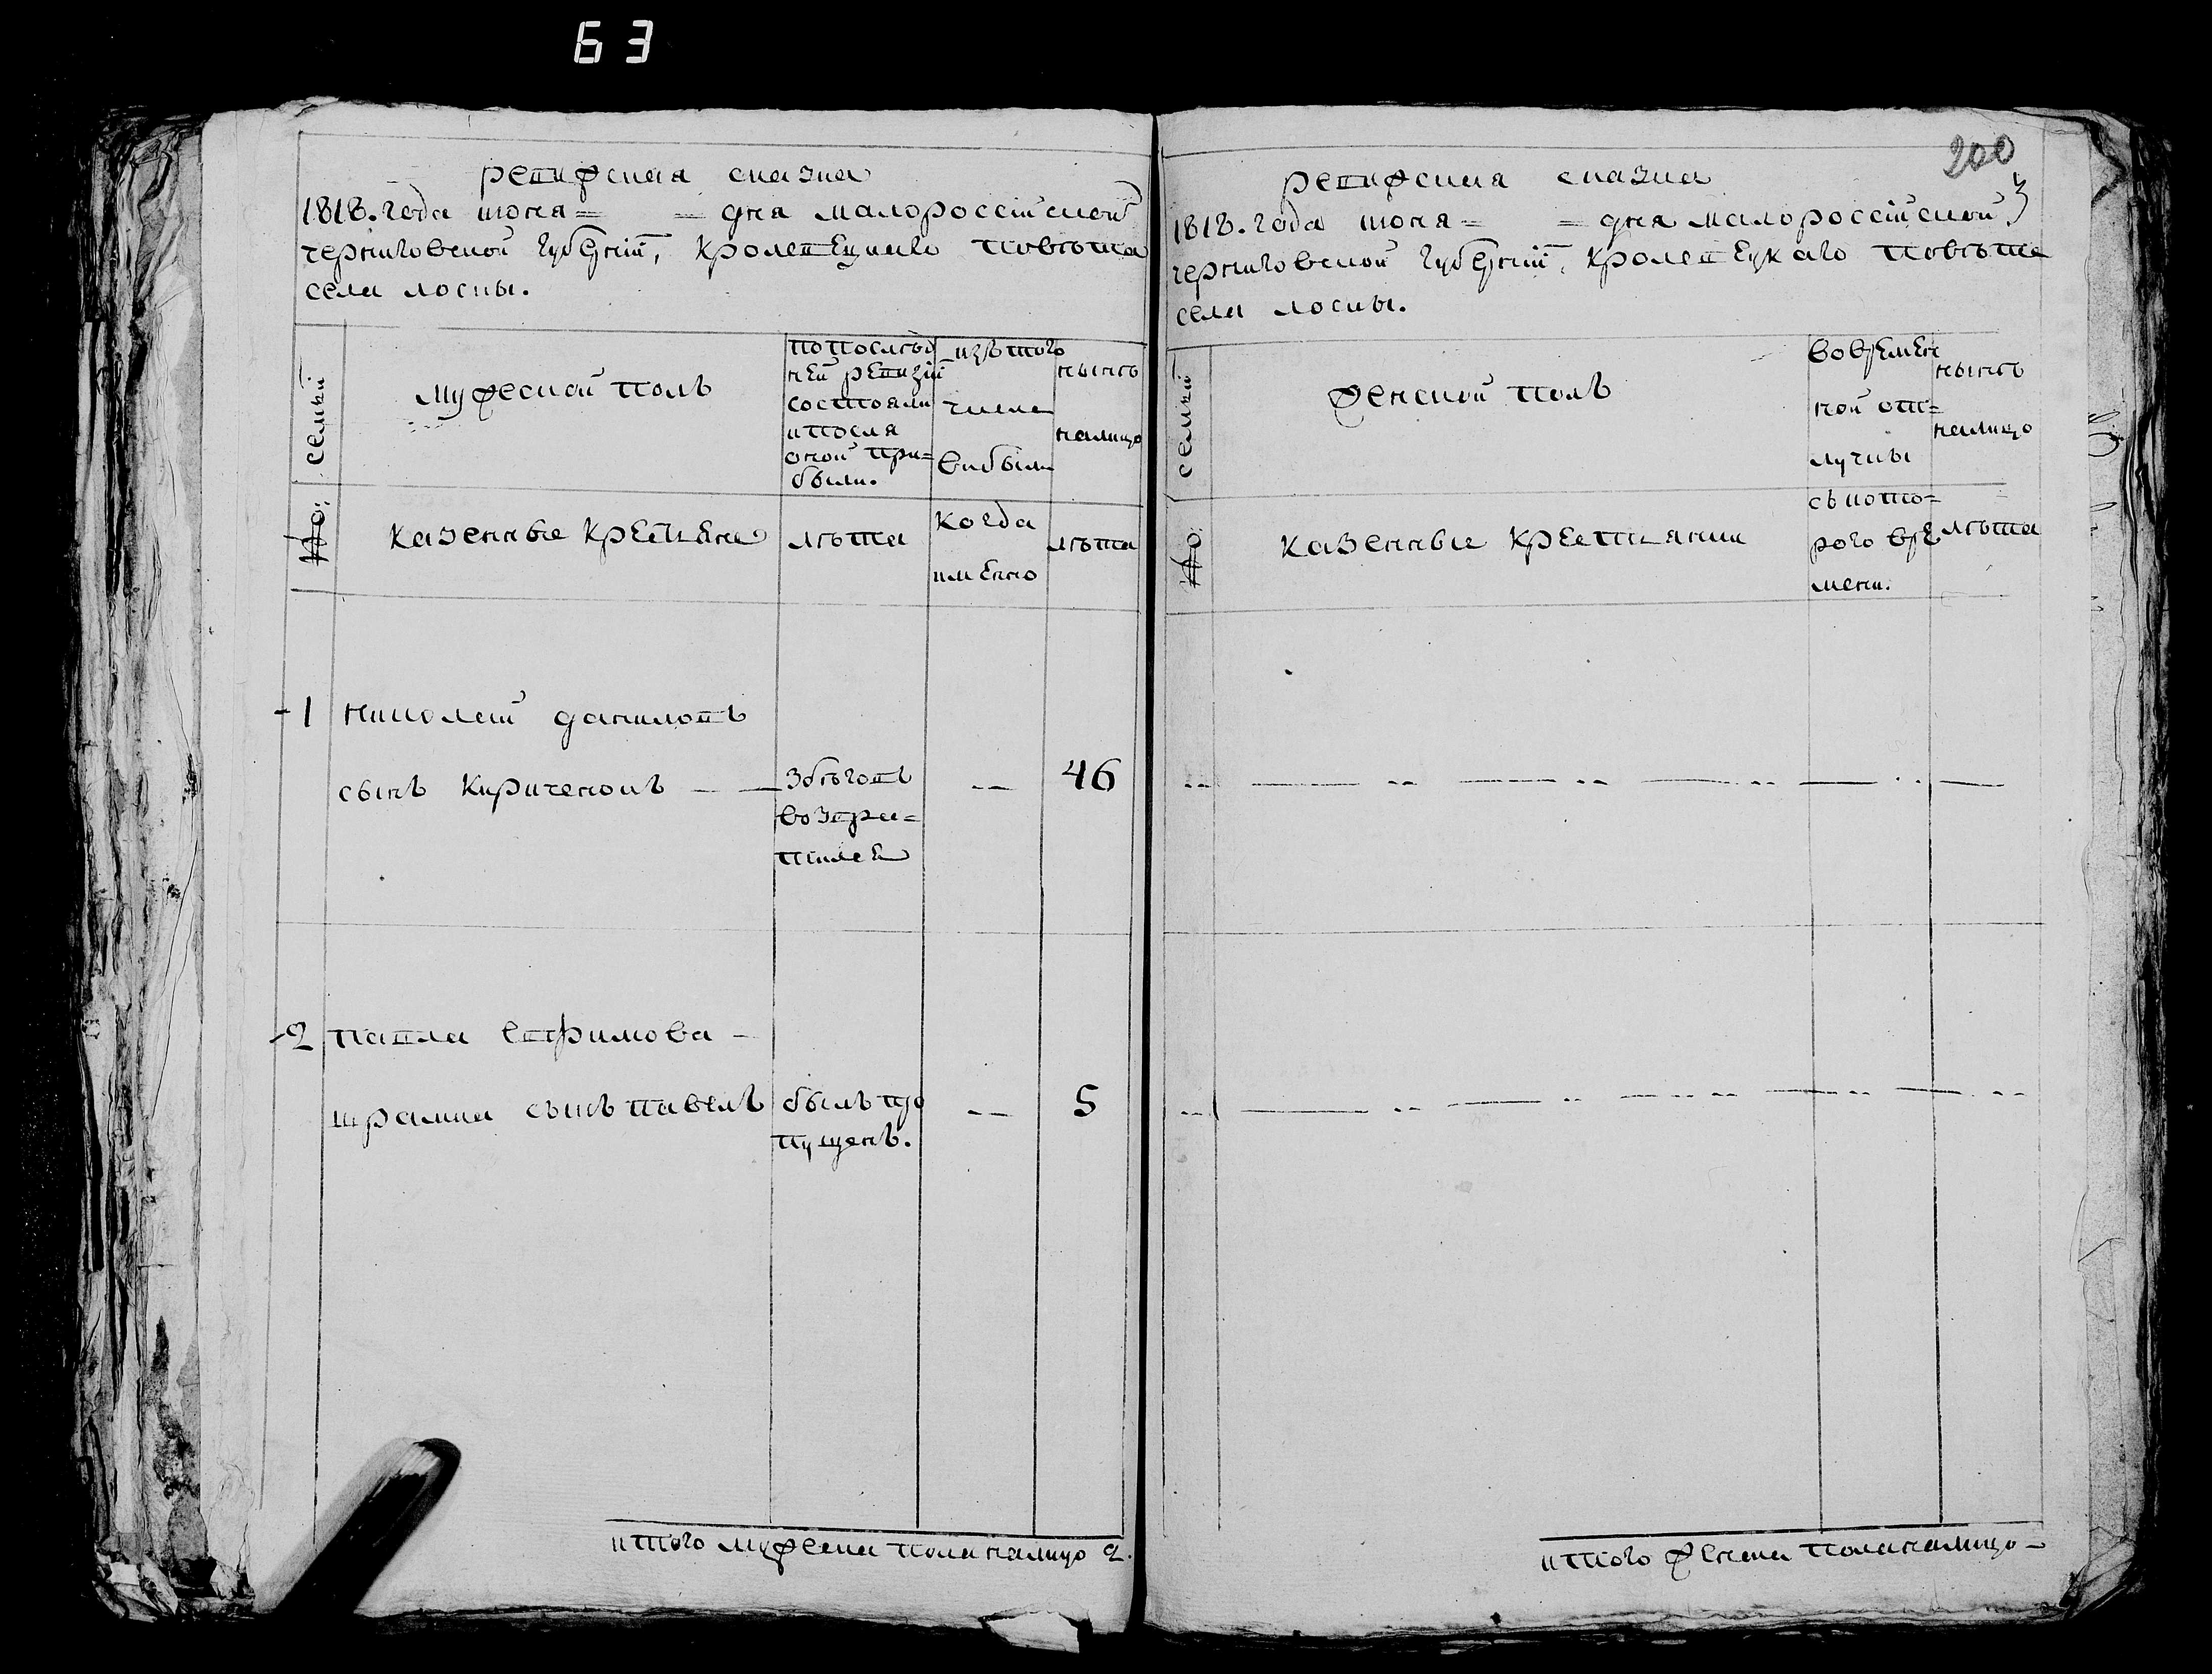 63
200
3
Ревижская сказка
1818. года июня= = дня малороссійской
черниговской губерніи, Кролевецкаго повѣта
села лоски.
№: семьи
мужеской полъ
попослѣд
ней ревизіи
состояли
ипосля
оной при=
были.
изътого
числа
выбыли
нынѣ
налицо
казенные крестьяне
лѣта
когда
имѣнно
лѣта
1 николай даниловъ
сынъ Кириченокъ — —
збѣговъ
возвра=
тился
--
46
2 павла ефимова —
шрамка сынъ павелъ
былъ про
пущенъ.
--
5
итого мужеска пола налицо 2.
Ревижская сказка
1818. года июня= = дня малороссійской
черниговской губерніи, кролевецкаго повѣта
села лоски.
№: семьи
женской полъ
вовремен
ной от=
лучки
нынѣ
налицо
казенные крестьянки
съ кото=
рого вре
мени.
лѣта
итого женска пола налицо —